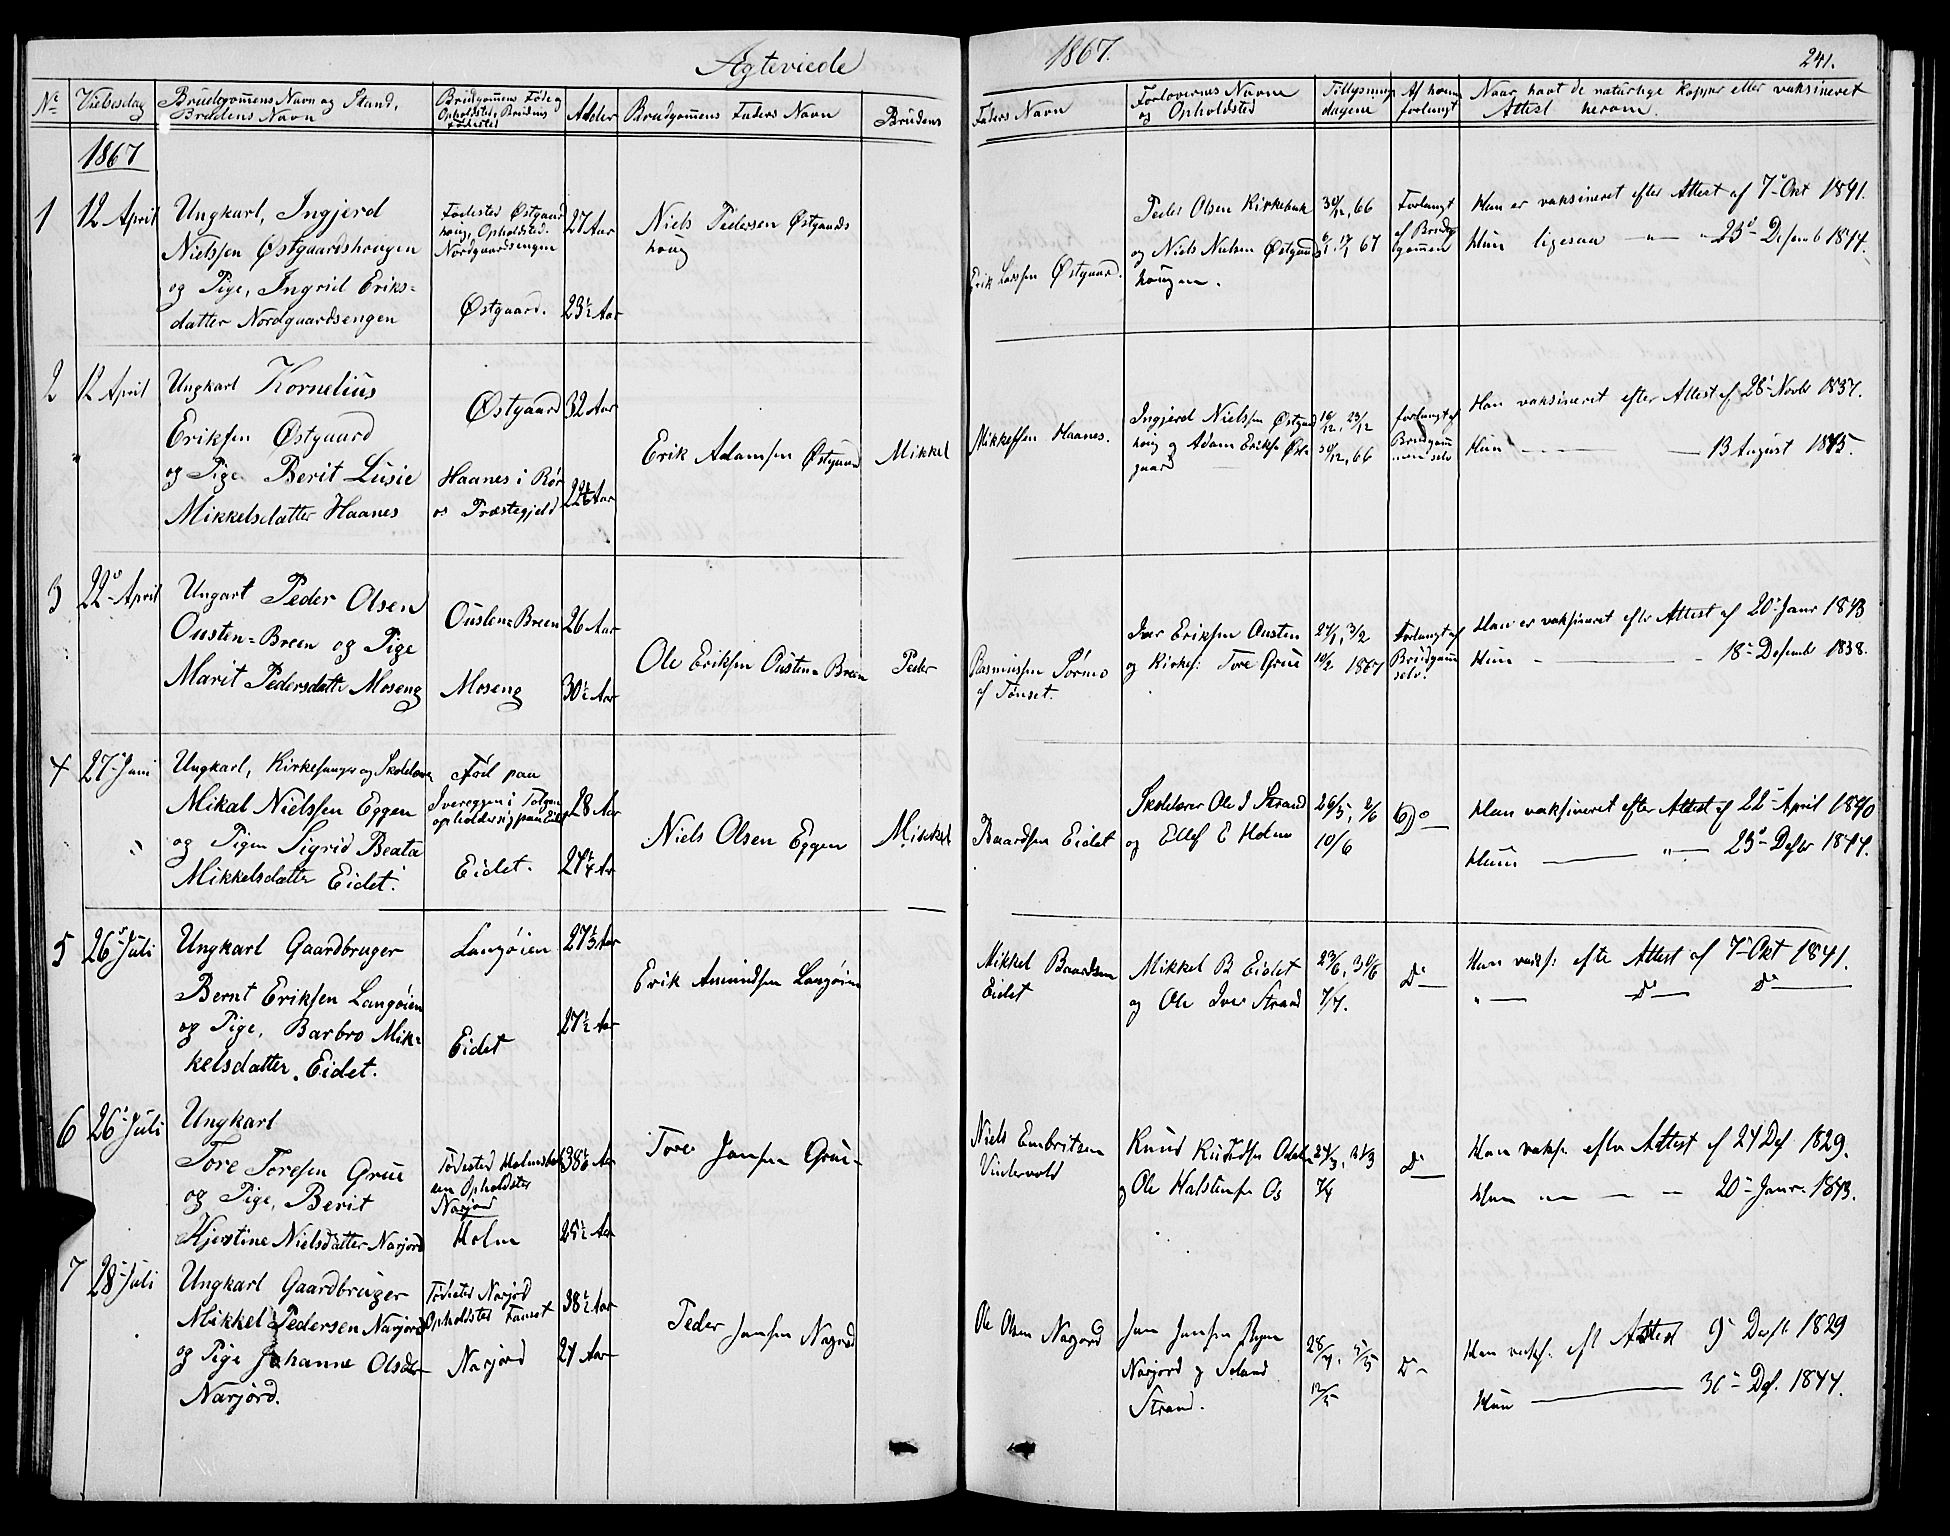 Ægteviede
1867.
241.
Nr.
Vielsesdag
Brudgommens Navn og Stand,
Brudens Navn
Brudgommens Føde og
Opholdsted, Brudens
Fødested
Alder
Brudgommens Faders Navn
Brudens
Faders Navn
Forlovernes Navne
og Opholdsted
Tillysnings
dagene
Af hvem
forlangt
Naar havt de naturlige Kopper eller vaksineret
Attest herom.
1867
1
12 April
Ungkarl, Ingjerd
Nielssen Østgaardshougen
og Pige, Ingrid Eriks=
datter Nordgaardsengen
Fødested Østgaard
houg, Opholdsted.
Nordgaardsengen
Østgaard.
27 Aar
23½ Aar
Niels Pedersen Østgaards
houg
Erik Larssen Østgaard.
Peder Olsen Kirkebak
og Niels Nielsen Østgaards
hougen.
30/12, 66
6/1, 67
Forlangt
af Brud
gommen
Han er vaksineret efter Attest af 7de Okt 1841.
Hun ligesaa 23de Desemb 1844.
2
12 April
Ungkarl Kornelius
Eriksen Østgaard
og Pige Berit Lusie
Mikkelsdatter Haanes
Østgaard
Haanes i Rør
os Præstegjeld
32 Aar
Erik Adamsen Østgaard
Mikkel
Mikkelsen Haanes.
Ingjerd Nielssen Østgaard
houg og Adam Eriksen Øst
gaard
16/12, 23/12
30/12, 66
forlangt af
Brudgom
men selv
Han vaksineret efter Attest af 28de Novbr 1837.
Hun 13 August 1845.
3
22de April
Ungart Peder Olsen
Ousten=Breen og Pige
Marit Pedersdatte Moseng
Ousten=Breen
Moseng
26 Aar
30½ Aar
Ole Eriksen Ousten=Breen
Peder
Rasmussen Tørmo
af Tønset.
Iver Eriksen Ousten
og Kirkes: Tore Grue
27/1, 3/2
10/2 1867
Forlangt af
Brudgom
selv.
Han er vaksineret eftr Attest af 20de Janr 1843
Hun 18de Desembr 1838.
4
27de Juni
Ungkarl, Kirkesanger og Skolelærer
Mikal Nielssen Eggen
og Pigen Sigrid Beata
Mikkelsdatter Eidet.
Fød paa
Ivereggen i Tolgen
opholder sig paa Eidet
Eidet.
28 Aar
27¼ Aar
Niels Olsen Eggen
Mikkel
Baardsen Eidet
Skolelærer Ole I Strand
og Ellef E Holm
26/5, 2/6
10/6
Do
Han vaksineret efter Attest af 22de April 1840
Hun 23de Desbr 1844.
5
26de Juli
Ungkarl Gaardbruger
Bernt Eriksen Langøien
og Pige, Barbro Mik=
kelsdatter Eidet.
Langøien
Eidet
27⅓ Aar
27½ Aar
Erik Amundsen Langøien
Mikkel Baardsen
Eidet
Mikkel B Eidet
og Ole Iver Strand
23/6, 30/6
7/7.
Do
Han vaks: efte Attest af 7de Okt 1841.
Do Do
6
26de Juli
Ungkarl
Tore Toresen Grue
og Pige, Berit
Kjerstine Nielsdatter Narjord
Narjord
Holm
25½ Aar
Tore Jonsen Grue
Niels Embritsen
Vintervold
Knud Knudsen Odden
og Ole Halstensen Os
24/3, 31/3
7/4
Do
Han vaks. eftr Attest af 24 Des 1829.
Hun 20de Janr. 1843.
7
28de Juli
Ungkarl Gaardbruger
Mikkel Pedersen Narjord
og Pige Johanne Olsdtr
Narjord.
Fødested Narjord
Opholdsted Fanset
Narjord
38½ Aar
24 Aar
Peder Jonsen Narjord
Ole Olsen Narjord
Jon Jonsen
Narjord og
Strand.
28/4, 5/5
12/5
Do
Han vaks. eft Attest 9de Desb. 1829
Hun 30de Des. 1844.